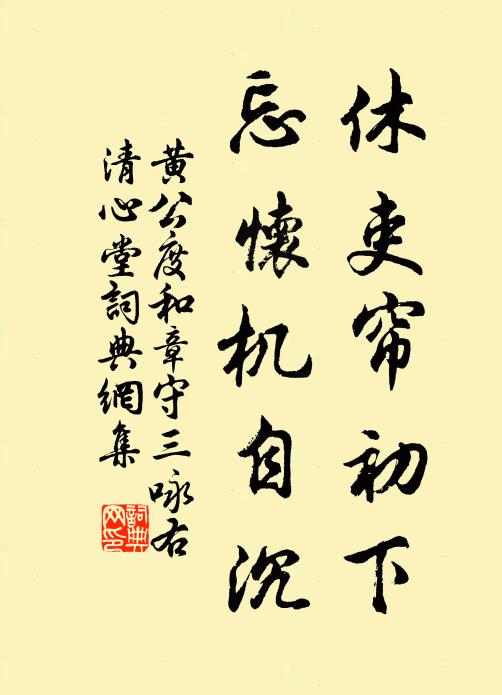 休吏帘初下
忘懷机自沉
黄公度和章守三咏右
清心堂詞典網集
詞典
网印